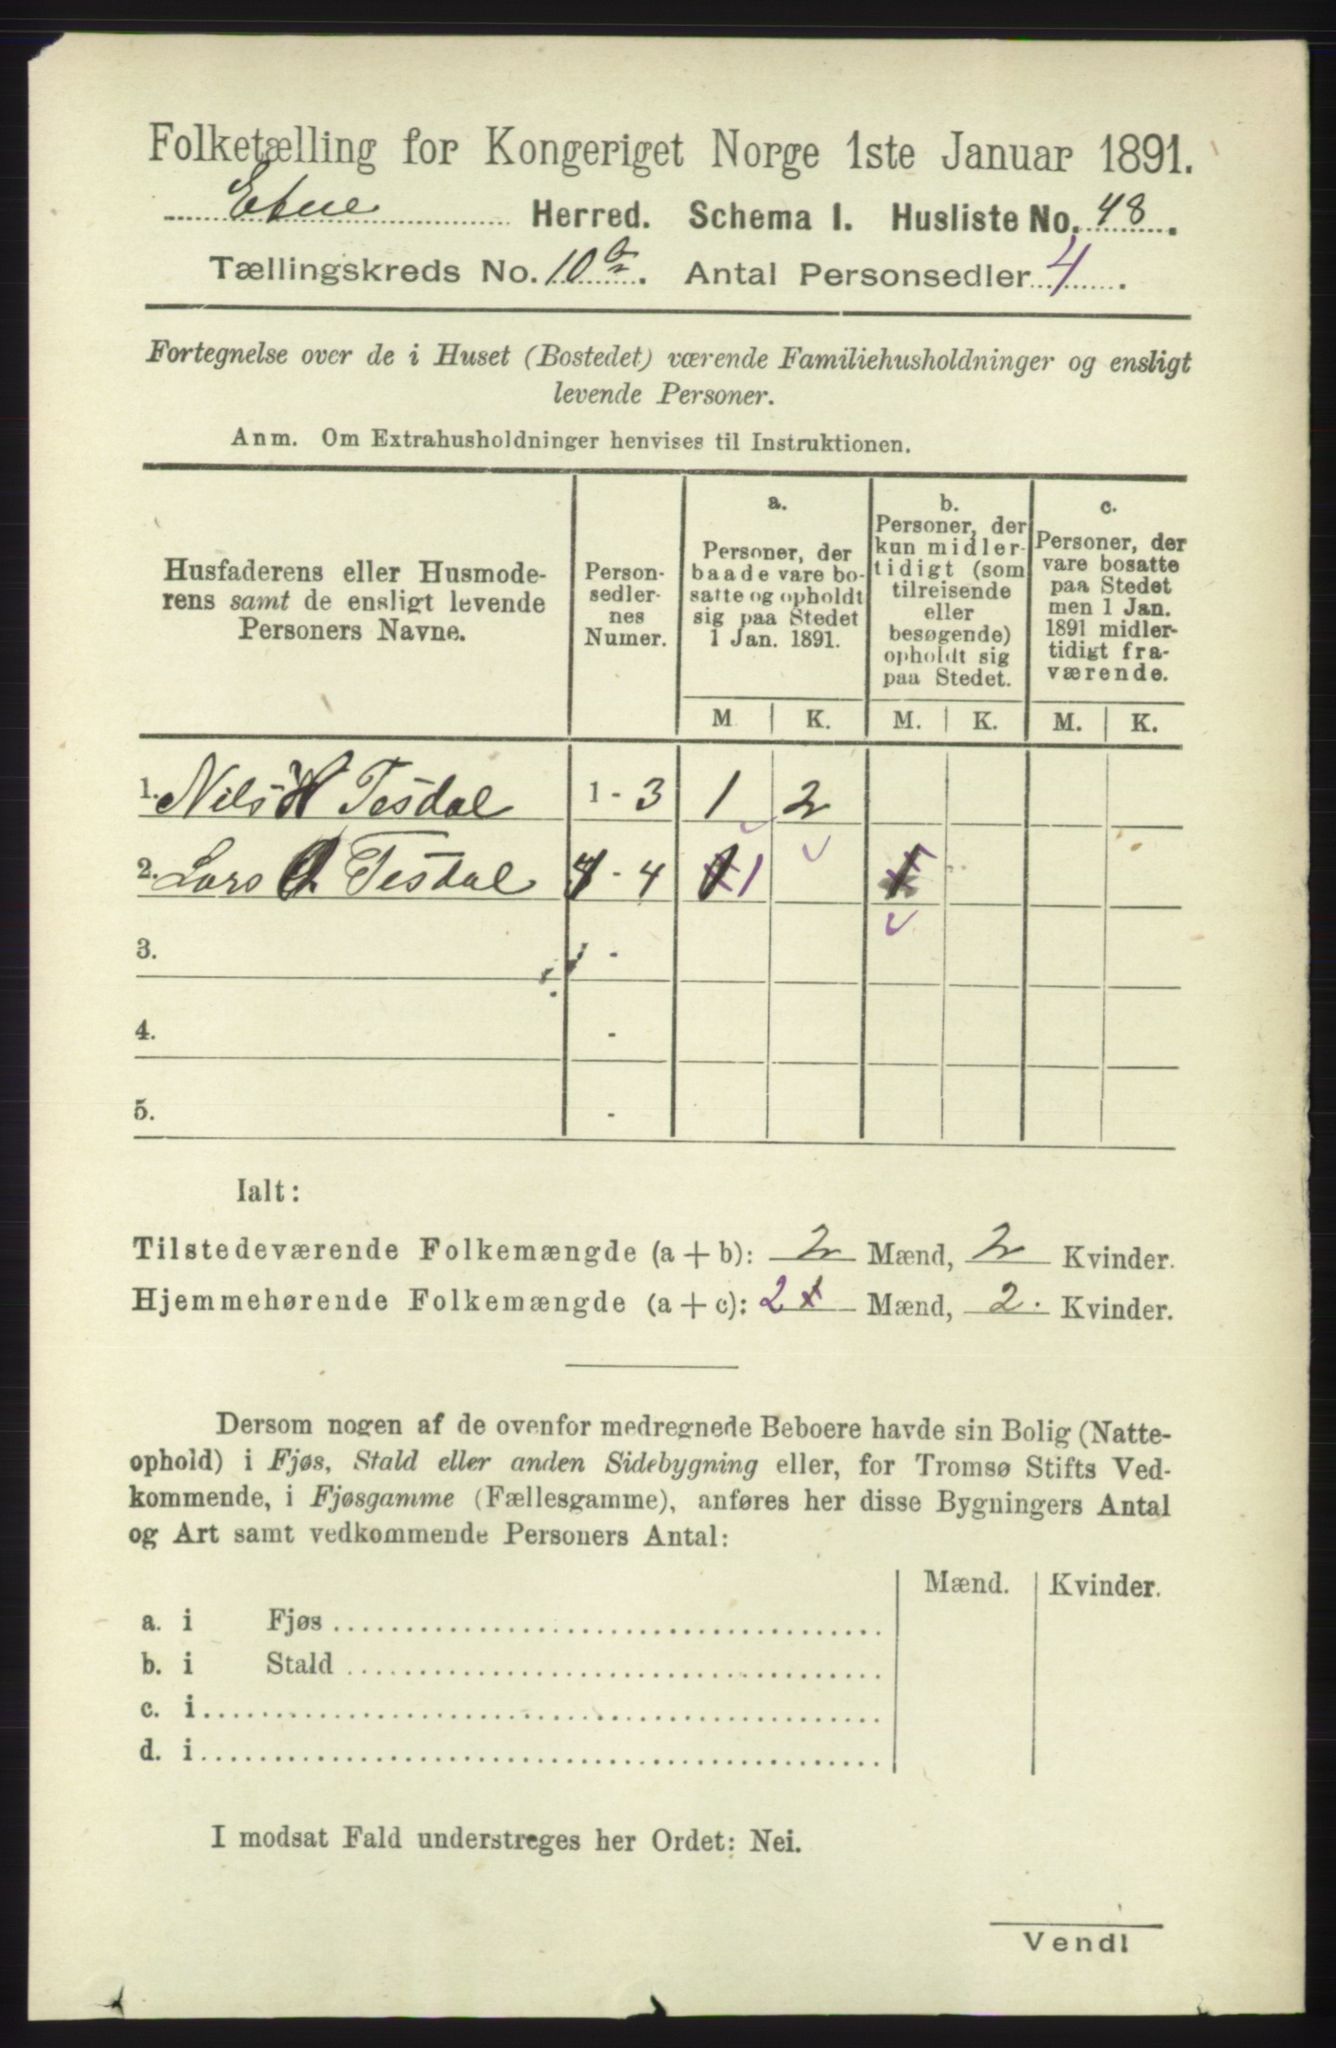 Folketælling for Kongeriget Norge 1ste Januar 1891.
Etne Herred. Schema I. Husliste No. 48.
Tællingskreds No. 10 . Antal Personsedler 4.
Fortegnelse over de i Huset (Bostedet) værende Familiehusholdninger og ensligt
levende Personer.
Anm. Om Extrahusholdninger henvises til Instruktionen.
Husfaderens eller Husmode-
rens samt de ensligt levende
Personers Navne.
Person-
sedler-
nes
Numer.
a.
Personer, der
baade vare bo-
satte og opholdt
sig paa Stedet
1 Jan. 1891.
b.
Personer, der
kun midler-
tidigt (som
tilreisende
eller
besøgende)
opholdt sig
paa Stedet.
c.
Personer, der
vare bosatte
paa Stedet
men 1 Jan.
1891 midler-
tidigt fra-
værende.
M K. M. K. M. K.
1. Nils H Tesdal 1 - 3 1 2
2. Lars Tesdal 4 - 4 1
3. -
4. -
5. -
Ialt:
Tilstedeværende Folkemængde (a + b): 2 Mænd, 2 Kvinder.
Hjemmehørende Folkemængde (a + c): 2 Mænd, 2. Kvinder.
Dersom nogen af de ovenfor medregnede Beboere havde sin Bolig (Natte-
ophold) i Fjøs, Stald eller anden Sidebygning eller, for Tromsø Stifts Ved-
kommende, i Fjøsgamme (Fællesgamme), anføres her disse Bygningers Antal
og Art samt vedkommende Personers Antal:
Mænd. Kvinder.
a. i Fjøs
b. i Stald
c. i
d. i
I modsat Fald understreges her Ordet: Nei.
Vendl